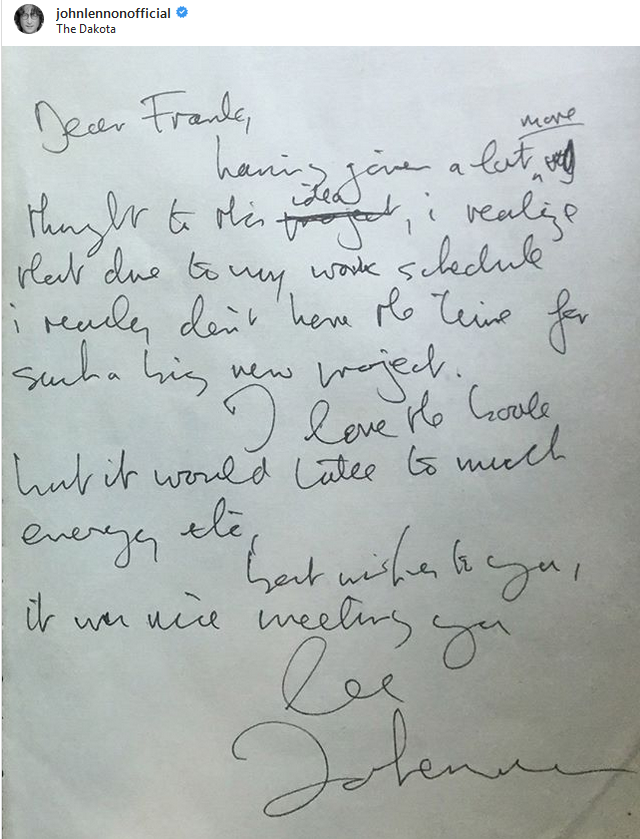 johnlennonofficial
The Dakota
Dear Frank,
more
having given a lot
idea
thought to this project, i realize
that due to my work schedule
i really don't have the time for
such a big new project.
I love the book
but it would take to much
energy etc,
best wishes to you,
it was nice meeting you